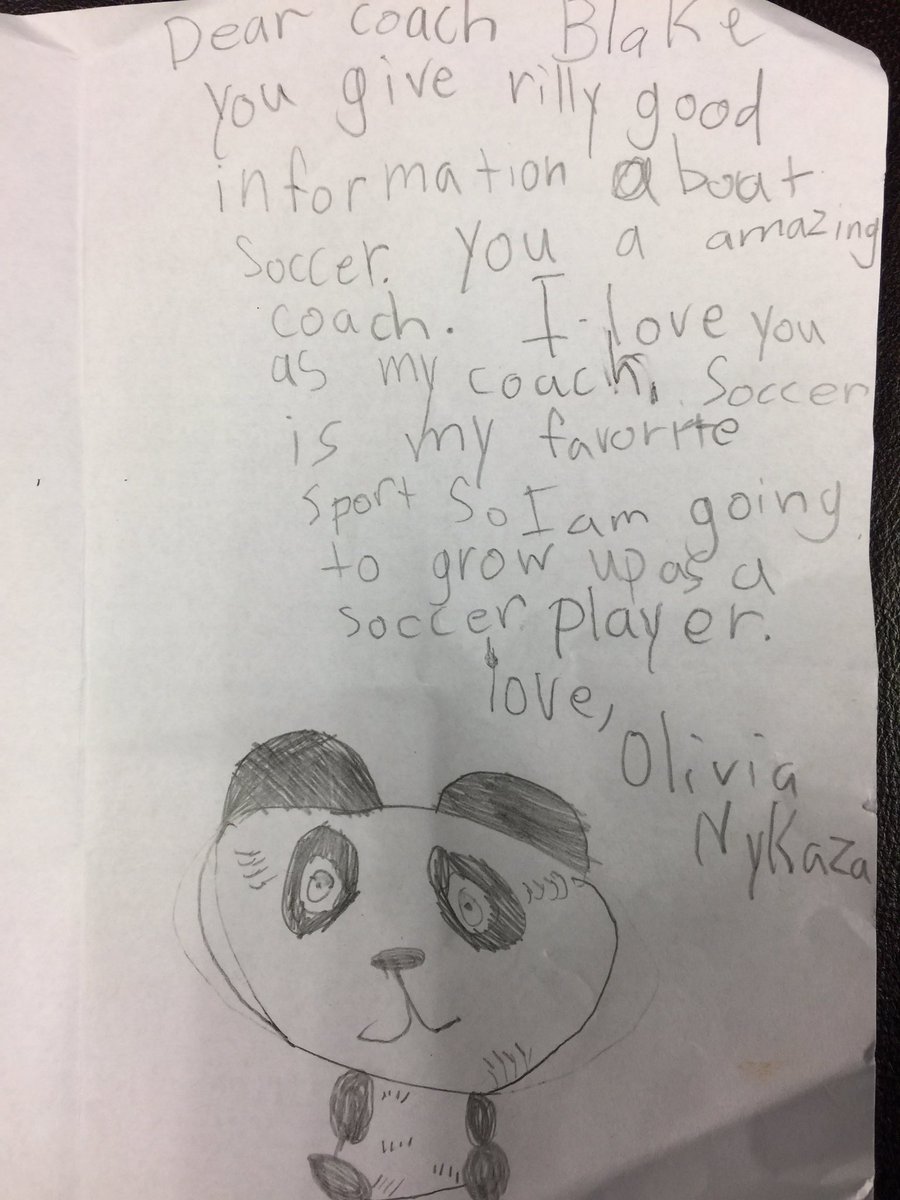 Dear coach Blake
you give rilly good
information aboat
Soccer. you a amazing
coach. I love you
as my coach, Soccer
is my favorite
sport So I am going
to grow up as a
soccer player.
love,
Olivia
Nykaza